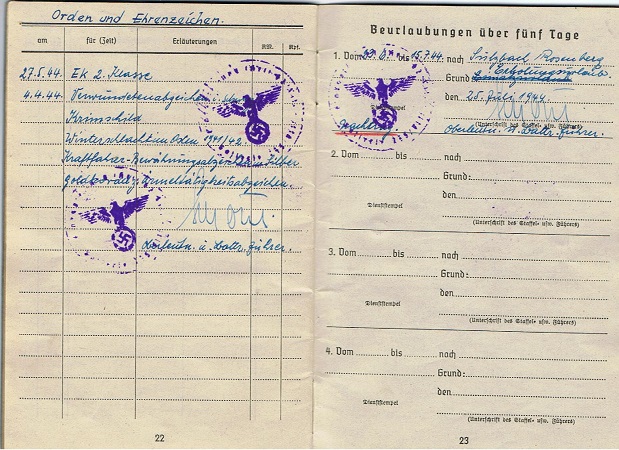 Orden und Ehrenzeichen.
am für (Zeit) Erläuterungen
27.5.44. EK 2. Klasse
4.4.44. Verwundetenabzeichen
Krimschild
Winterschlacht im Osten 1941/42
Kraftfahr-Bewährungsabzeichen Silber
Oberleutn. u. Battr. Führer.
22
Beurlaubungen über fünf Tage
1. Vom bis 15.7.44 nach Sulzbach Rosenberg
Grund: Erholungsurlaub
den 25. Juli 1944
(Unterschrift des Staffel- usw. Führers)
Oberleutn. u. Battr. Führer.
2. Vom bis nach
Grund:
den
Dienststempel
(Unterschrift des Staffel- usw. Führers)
3. Vom bis nach
Grund:
den
Dienststempel
(Unterschrift des Staffel- usw. Führers)
4. Vom bis nach
Grund:
den
Dienststempel
(Unterschrift des Staffel- usw. Führers)
23